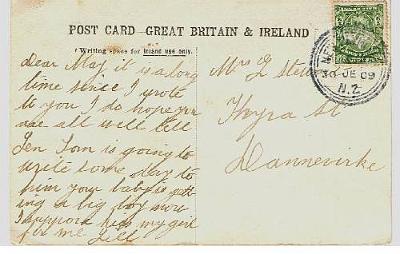 POST CARD GREAT BRITAIN & IRELAND
Writing space for inland use only.
Dear May it is a long
time since I wrote
to you I do hope you
are all well tell
Len Tom is going to
write some day to
him your baby is gett
ing a big boy now
I suppose kiss my girl
for me
Mrs G
Thyra St
Dannevirke
30 JE 09
N.Z